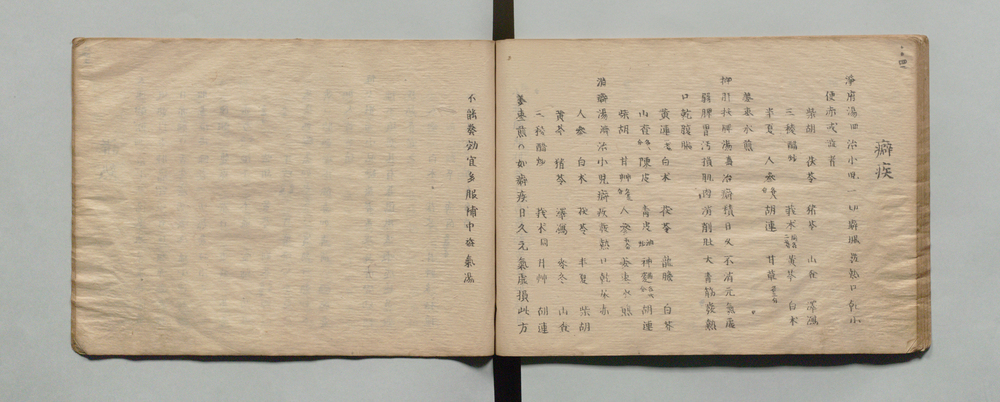 癖疾
淨府湯 治小兒一切癖 發熱口乾小
便赤或
柴胡 茯苓 猪苓 山査 澤瀉
三稜醋炒 莪朮 黃芩 白朮
半夏 人參 胡連 甘草
姜棗水煎
抑肝扶脾湯 治癖積日久不消元氣虛
弱脾胃 損肌肉消削肚大青筋發熱
口乾腹脹
黃連 白朮 茯苓 龍膽 白芥
山査 陳皮 青皮 神麯 胡連
柴胡 甘艸 人參 姜棗水煎
消癖湯 治小兒癖疾發熱口乾 赤
人參 白朮 茯苓 半夏 柴胡
黃芩 猪苓 澤瀉 麥冬 山査
三稜醋炒 莪朮 甘艸 胡連
姜棗煎 如癖疾日久元氣虛損此方
不能 効宜多服補中益氣湯